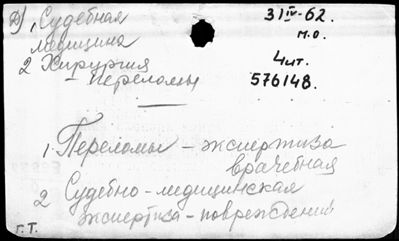 2), Судебная
медицина
2 Хирургия
- переломы
31 IV-62.
м.о.
4 ит.
576148.
1. Переломы - экспертиза
врачебная
2 Судебно-медицинская
экспертиза - повреждений
г.т.